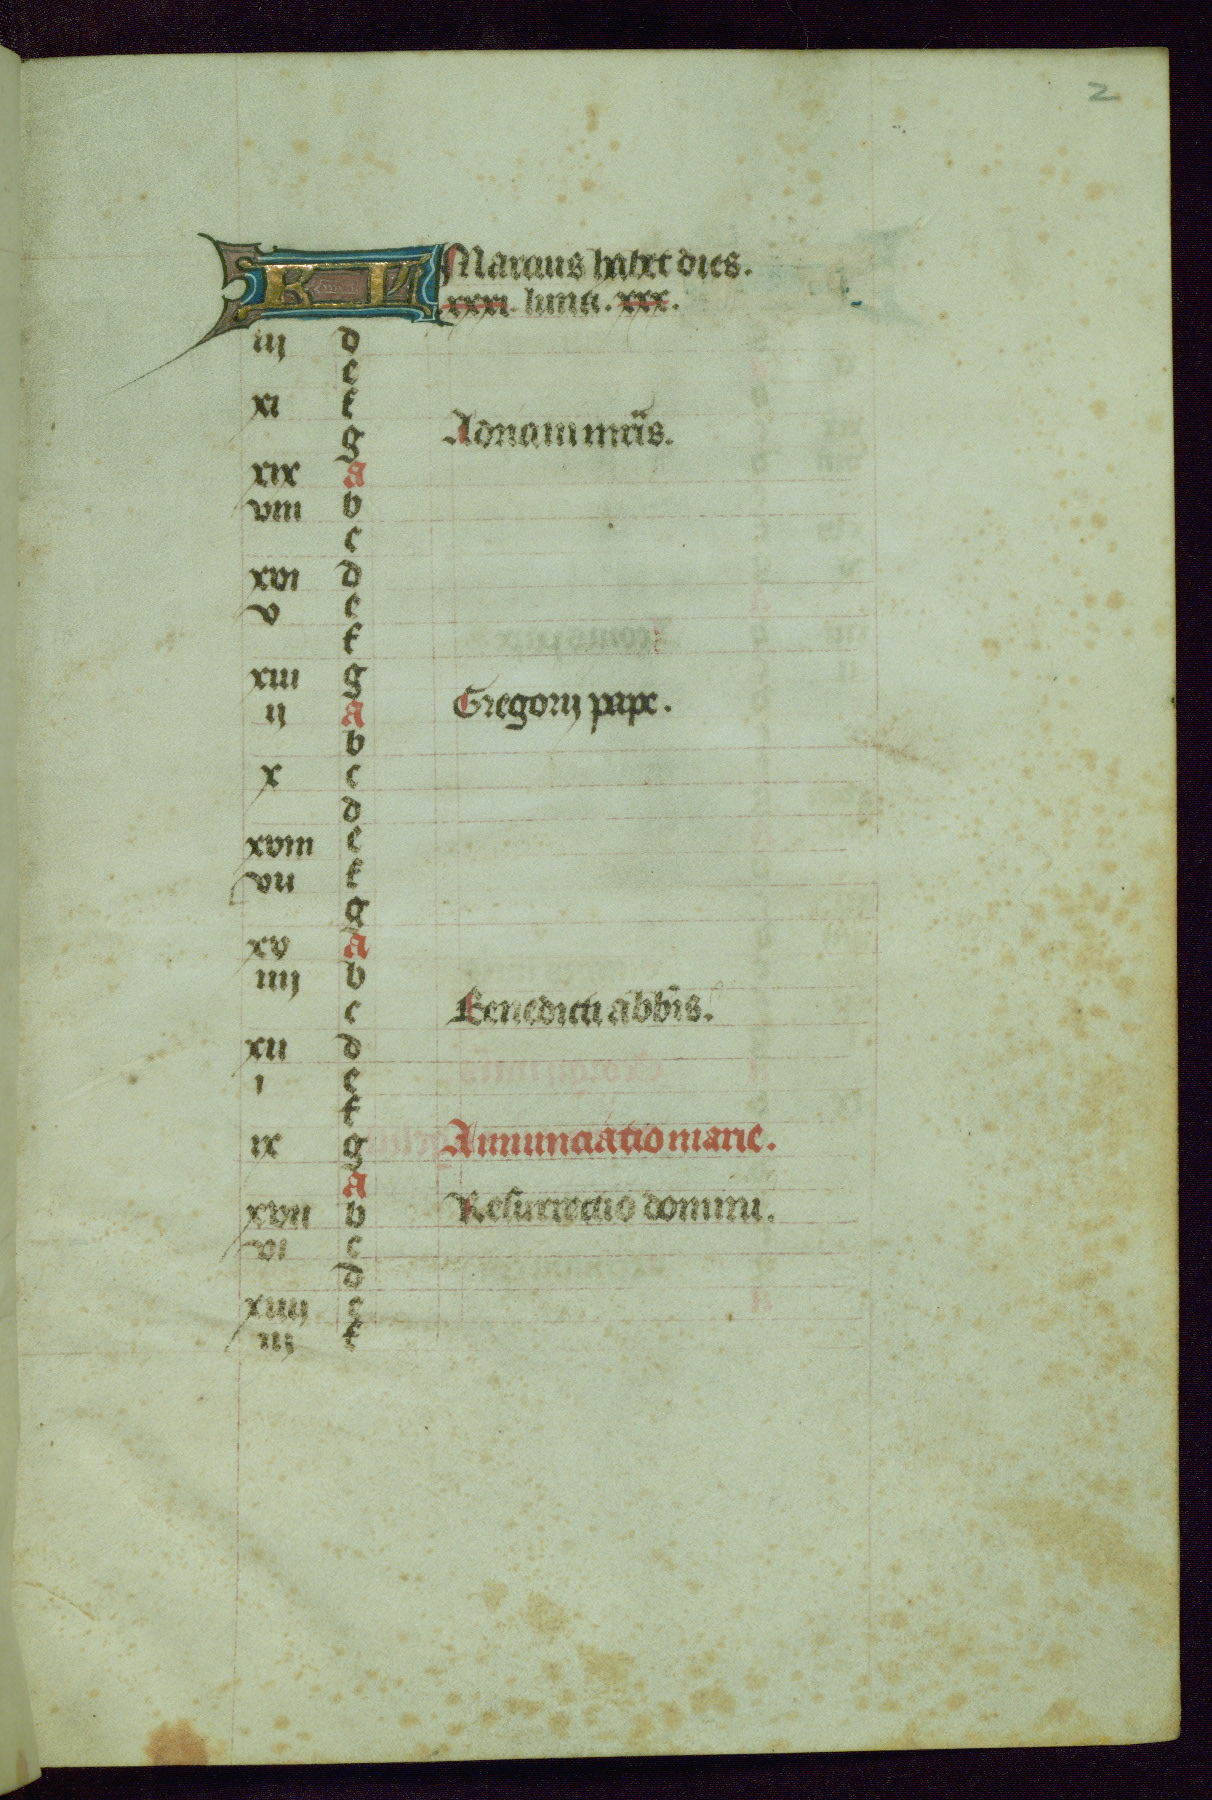 2
KL Marcius habet dies.
xxxi. luna. xxx.
iij d
e
xi f
g Adriani mr̄is.
xix a
viii b
c
xvi d
v e
f
xiii g
ij a Gregorij pape.
b
x c
d
xviii e
vii f
g
xv a
iiij b
c Benedicti abb̄is.
xii d
i e
f
ix g Annunciatio marie.
a
xvii b Resurrectio domini.
vi c
d
xiiij e
iij f